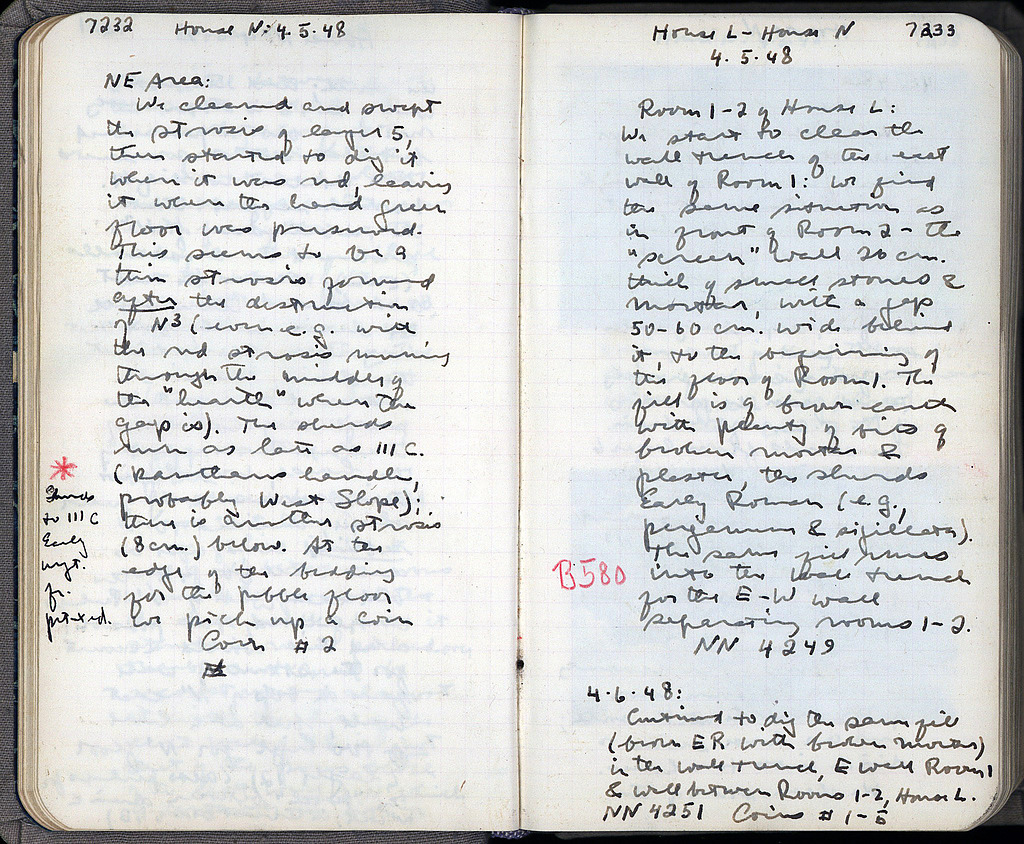 7232 House N: 4.5.48
NE Area:
We cleaned and swept
the strosis of layer 5,
then started to dig it
when it was red, leaving
it when the hard green
floor was preserved.
This seems to be a
thin strosis formed
after the destruction
of N3 (even e.g. with
the red strosis running
through the middle of
the "hearth" where the
gap is). The sherds
run as late as III C.
(Kantharos handle,
probably West Slope);
there is another strosis
(8cm.) below. At the
edge of the bedding
for the pebble floor
we pick up a coin
Coin #2
*
Sherds
to III C
Early
myt.
fr.
pitted.
House L - House N 7233
4.5.48
Room 1-2 of House L:
We start to clean the
wall trench of the east
wall of Room 1: we find
the same situation as
in front of Room 2 - the
"screen" wall 20 cm.
thick of small stones &
mortar, with a gap
50-60 cm. wide behind
it, to the beginning of
the floor of Room 1. The
fill is of brown earth
with plenty of bits of
broken mortar &
plaster, the sherds
Early Roman (e.g.,
pergamene & sigillata).
The same fill runs
into the wall trench
for the E-W wall
separating rooms 1-2.
B580
NN 4249
4.6.48:
Continued to dig the same fill
(brown ER with broken mortar)
in the wall trench, E wall Room 1
& wall between Rooms 1-2, House L.
NN 4251 Coins #1-5